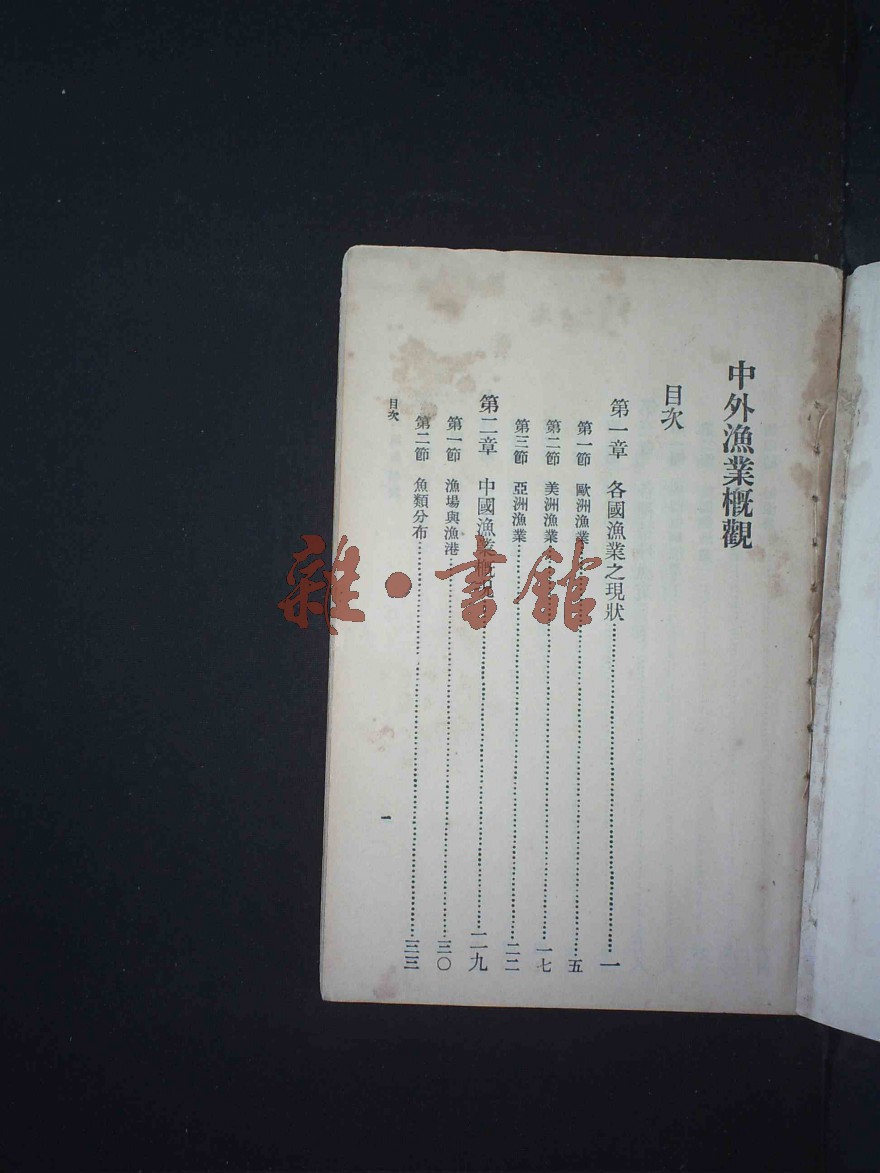 中外漁業概觀
目次
第一章 各國漁業之現狀……一
第一節 歐洲漁業……五
第二節 美洲漁業……一七
第三節 亞洲漁業……二二
第二章 中國漁業概況……二九
第一節 漁場與漁港……三〇
第二節 魚類分布……三三
目次 一
雜·書館